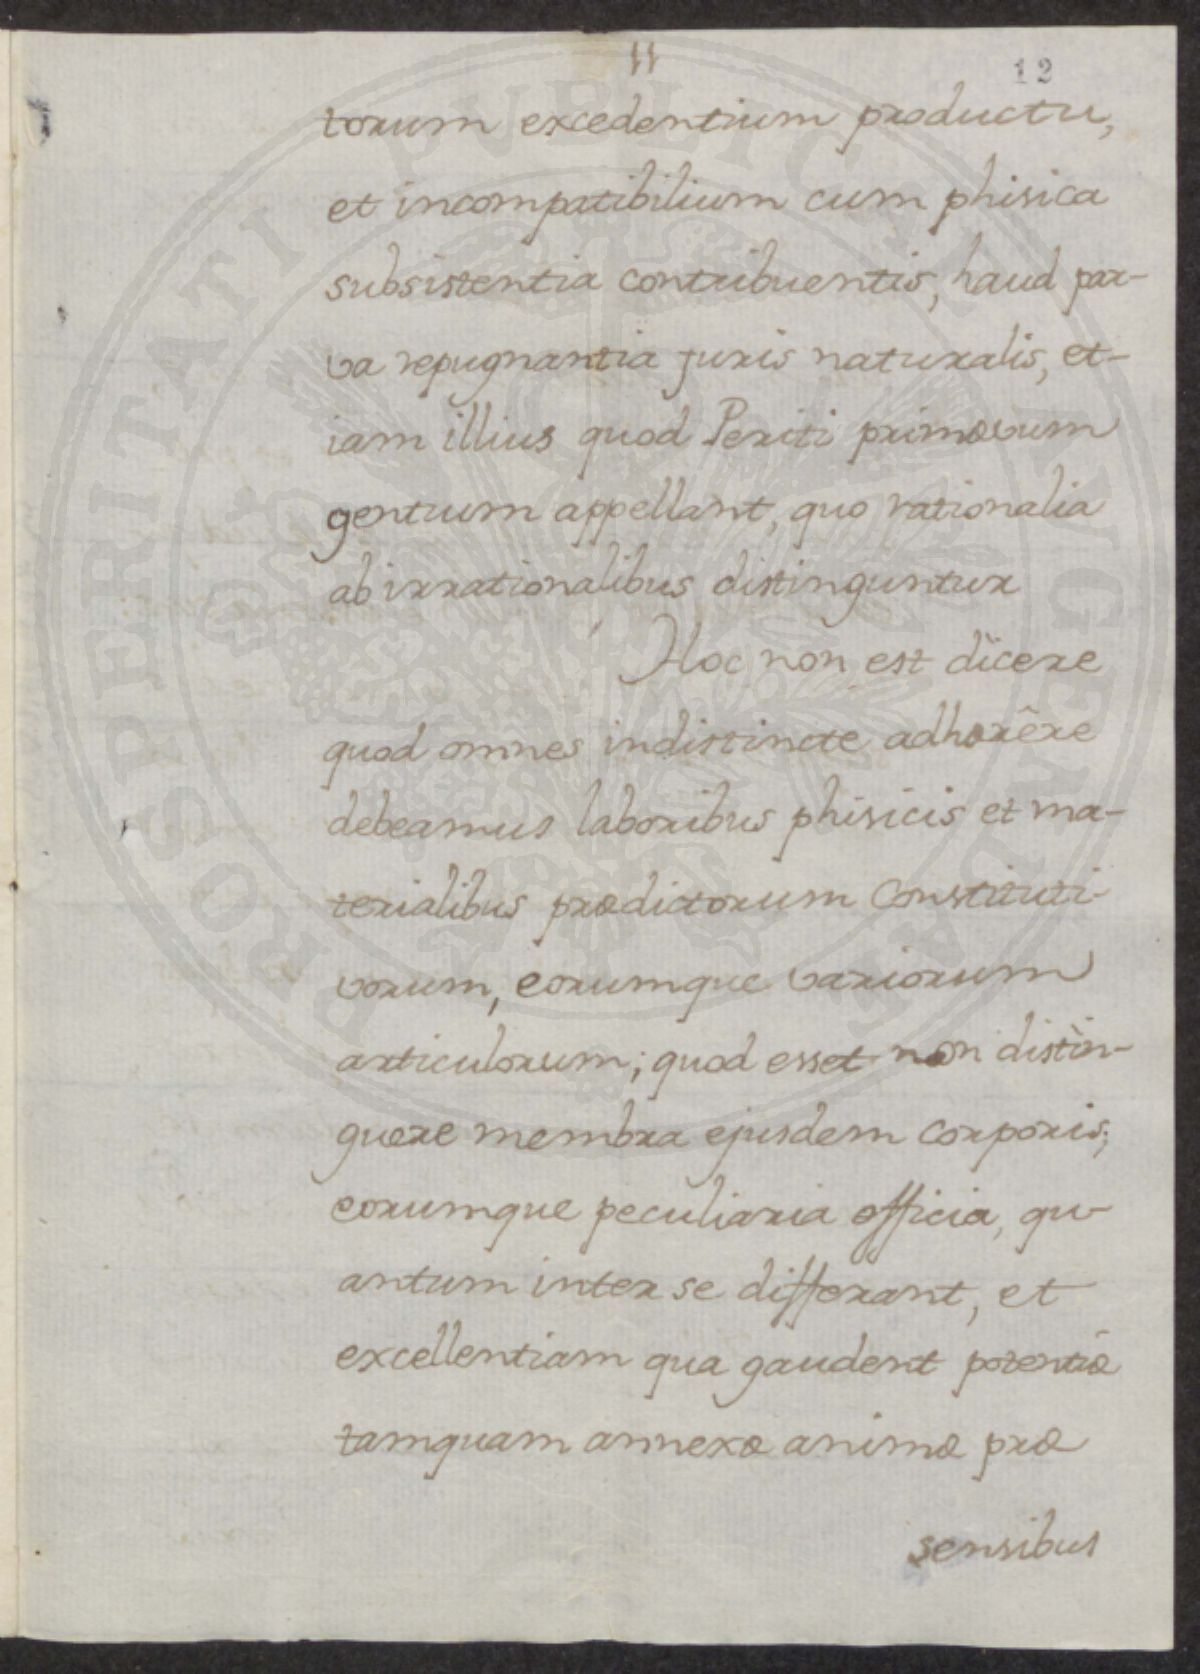 11
12
torum excedentium productu,
et incompatibilium cum phisica
subsistentia contribuentis, haud par-
va repugnantia juris naturalis, et-
iam illius quod Periti primævum
gentium appellant, quo rationalia
ab irrationalibus distinguntur
Hoc non est dicere
quod omnes indistincte adhærêre
debeamus laboribus phisicis et ma-
terialibus prædictorum Constituti-
vorum, eorumque variorum
articulorum; quod esset non distin-
guere membra ejusdem corporis;
eorumque peculiaria officia, qu-
antum inter se differant, et
excellentiam qua gaudent potentiæ
tamquam annexæ animæ præ
sensibus
PROSPERITATI PVBLICAE AVGENDAE